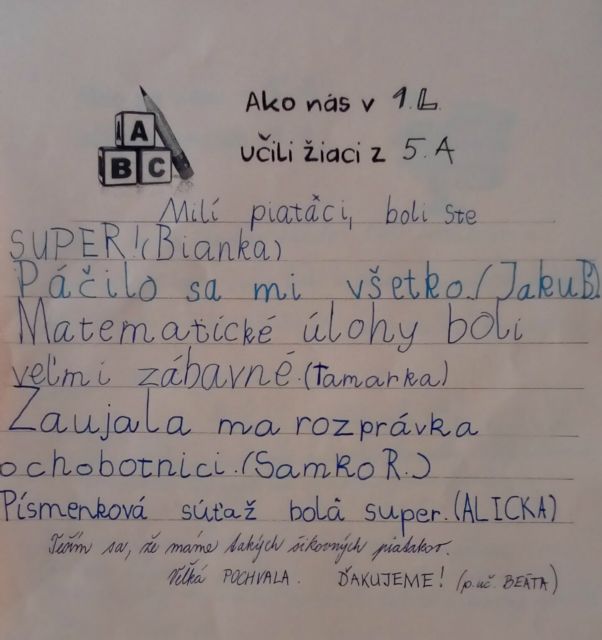 A
B C
Ako nás v 1.L.
učili žiaci z 5.A
Milí piatáci, boli ste
SUPER!(Bianka)
Páčilo sa mi všetko.(JakuB)
Matematické úlohy boli
veľmi zábavné.(Tamarka)
Zaujala ma rozprávka
o chobotnici.(Samko R.)
Písmenková súťaž bola super.(ALICKA)
Teším sa, že máme takých šikovných piatakov.
Veľká POCHVALA. ĎAKUJEME! (p.uč. BEÁTA)